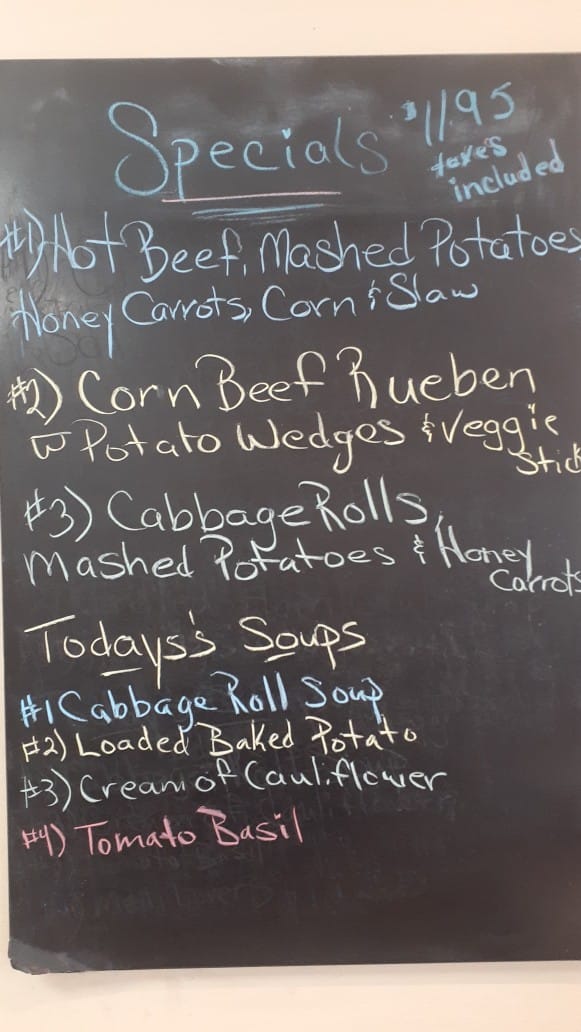 Specials $11.95
taxes
included
#1) Hot Beef, Mashed Potatoes,
Honey Carrots, Corn & Slaw
#2) Corn Beef Rueben
w Potato Wedges & Veggie
Stick
#3) Cabbage Rolls,
Mashed Potatoes & Honey
Carrots
Todays's Soups
#1 Cabbage Roll Soup
#2) Loaded Baked Potato
#3) Cream of Cauliflower
#4) Tomato Basil